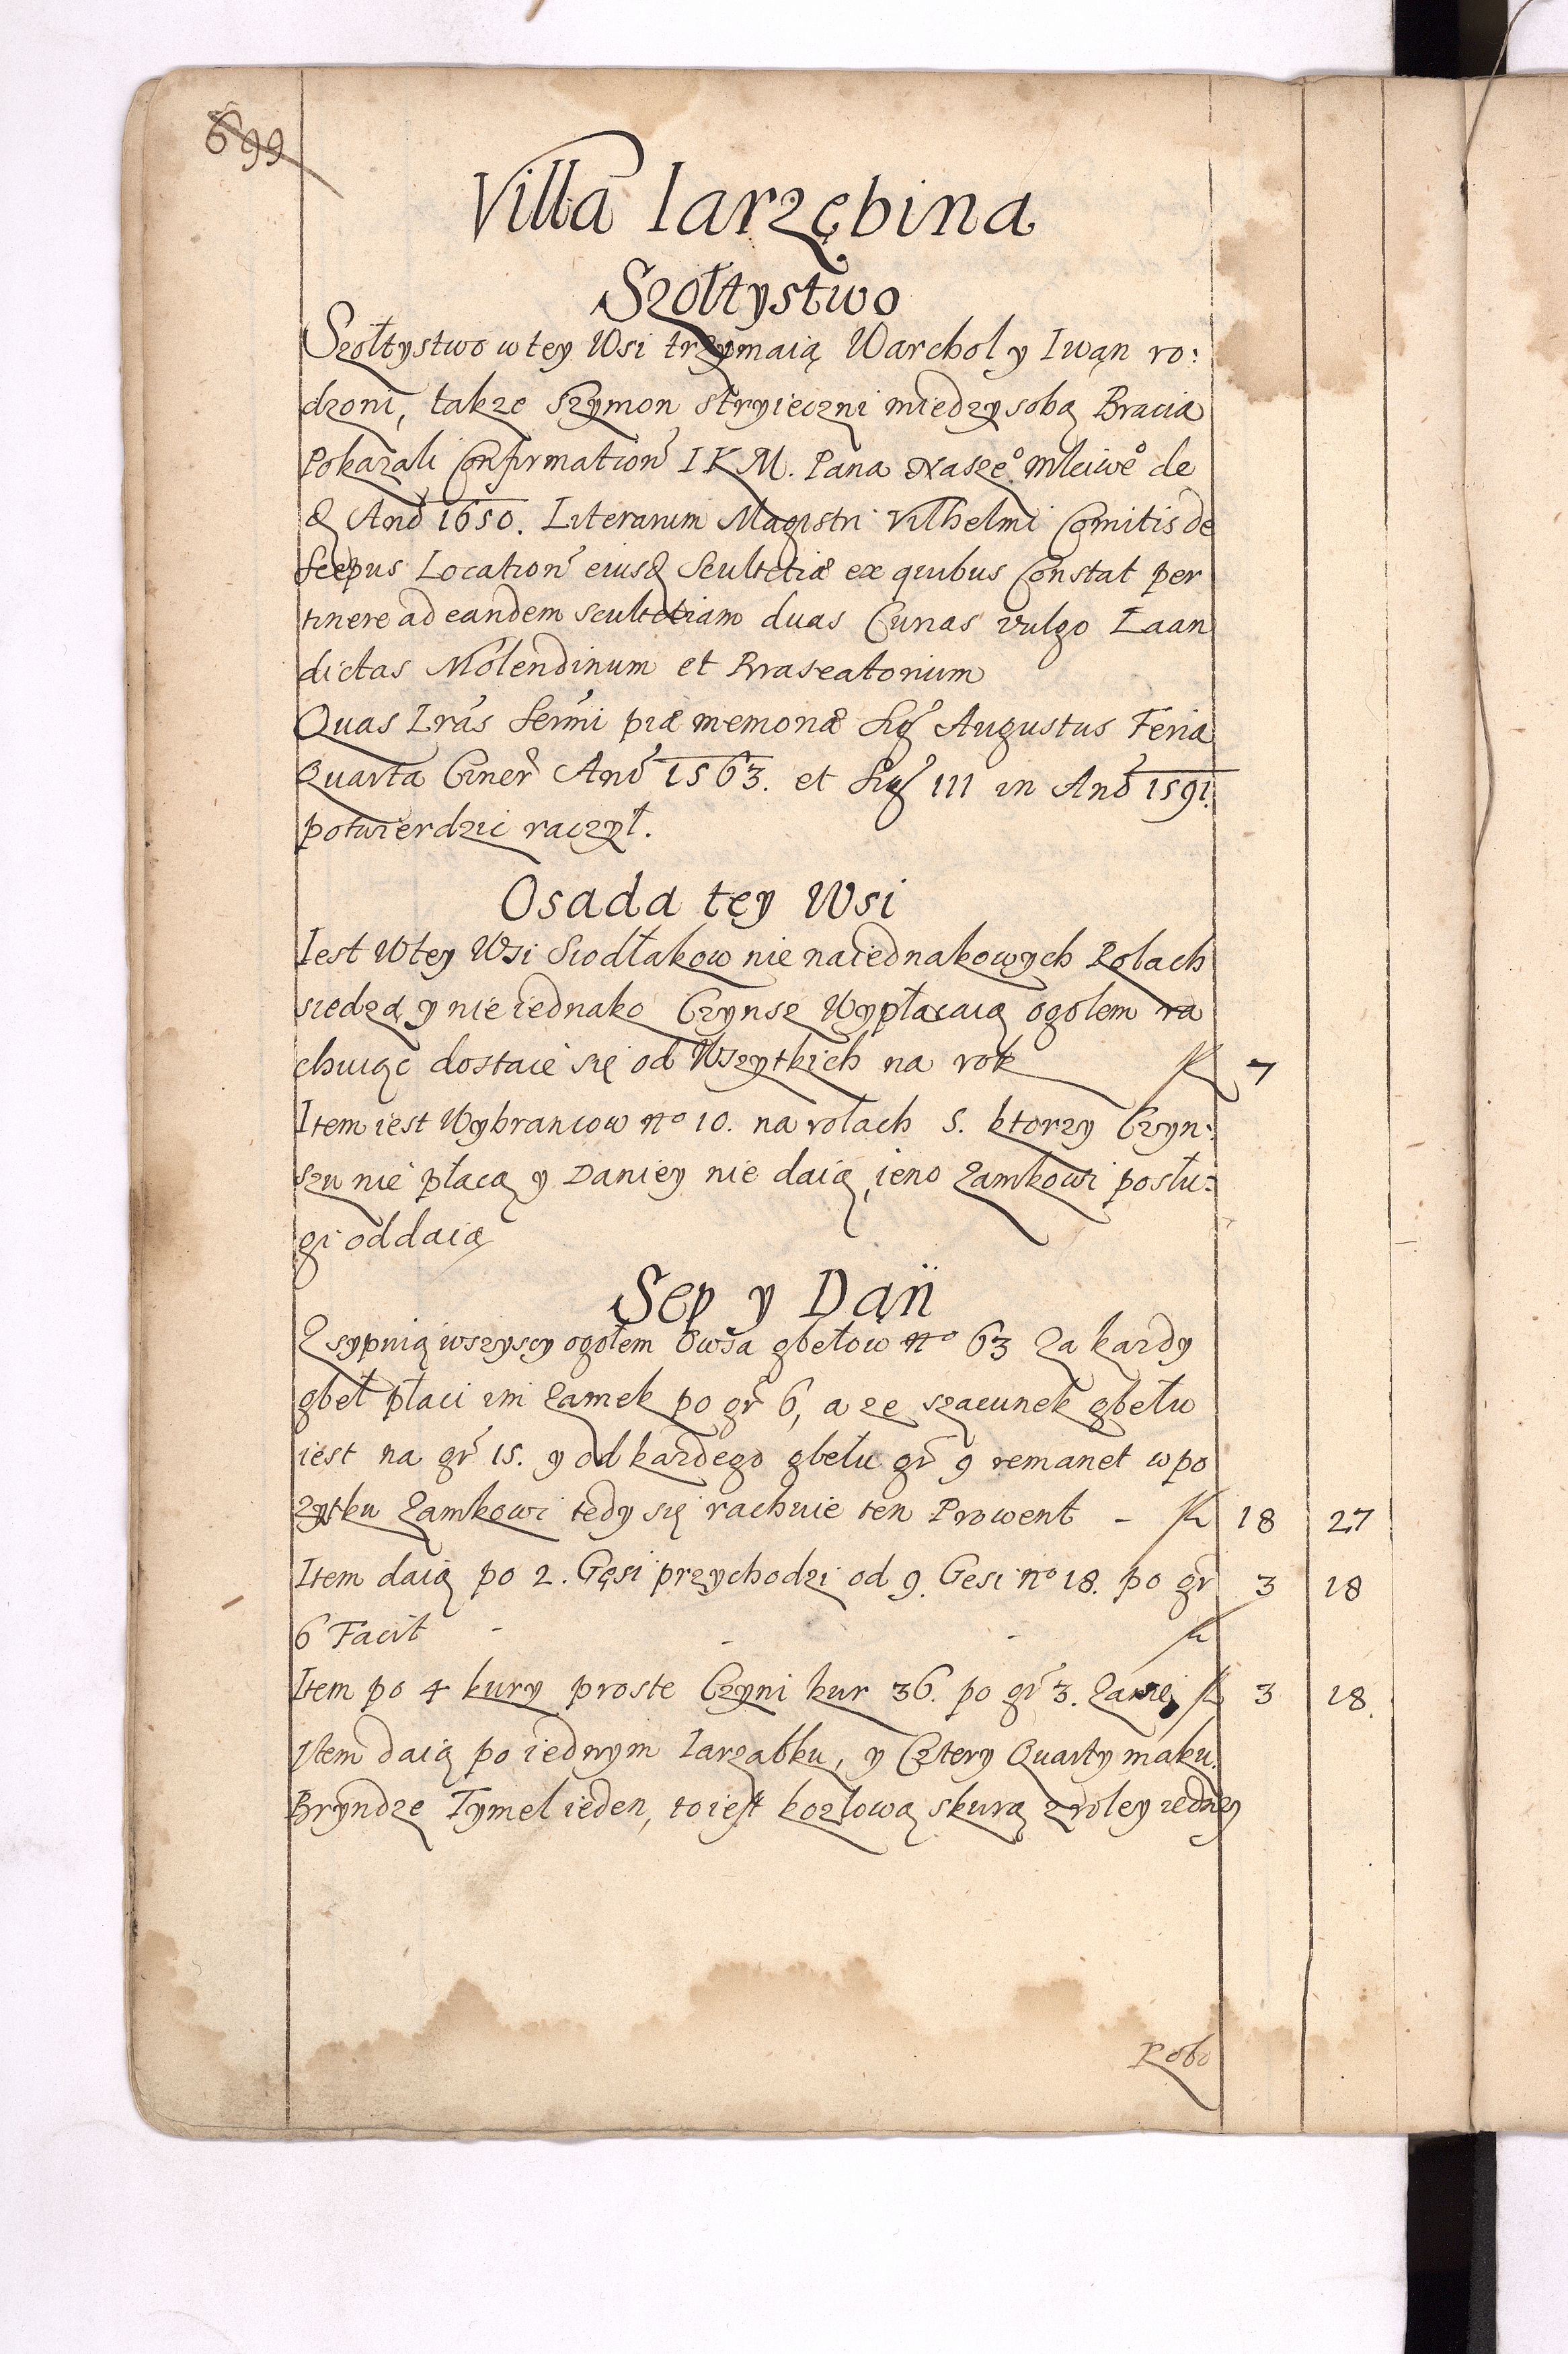 699
Villa Iarzębina
Szołtystwo
Szołtystwo w tey Wsi trzymaią Warchol y Iwąn ro:
dzoni, takze Szymon stryieczni miedzy sobą Bracia
Pokazali Confirmation I K M. Pana Nasze° Mlciwe° de
Ano 1650. Literarum Magistri Vilhelmi Comitis de
Scepus Location eiusq Scultetiæ ex quibus Constat per
tinere ad eandem scultetiam duas Curias vulgo Łaan
dictas Molendinum et Braseatorium
Quas Lras Sermi piæ memoriæ Sig Augustus Feria
Quarta Ciner Ano 1563. et Sig III in Ano 1591.
potwierdzic raczył.
Osada tęy Wsi
Iest W tey Wsi Siodłakow nie na iednakowych Rolach
siedzą y nie iednako Czynsz Wypłacaią ogołem ra
chuiąc dostaie się od Wszytkich na rok fl 7
Item iest Wybrancow no 10. na rolach 5. ktorzy Czyn:
szu nie płacą y Daniey nie daią, ieno Zamkowi posłu:
gi oddaią
Sep y Dąń
Zsypuią wszyscy ogołem Owsa gbełow no 63 Za kazdy
gbeł płaci im Zamek po gr 6, a ze szacunek gbełu
iest na gr 15. y od kazdego gbełu gr 9 remanet w po
zytku Zamkowi tedy się rachuie ten Prowent - fl 18 27
Item daią po 2. Gęsi przychodzi od 9. Gesi no 18. po gr 3 18
6 Facit - - - fl
Item po 4 kury proste Czyni kur 36. po gr 3. fl 3 18.
Item daią po iednym Iarząbku, y Cztery Quarty maku.
Bryndze Tymel ieden, to iest kozlową skurą z roley iedney
Robo